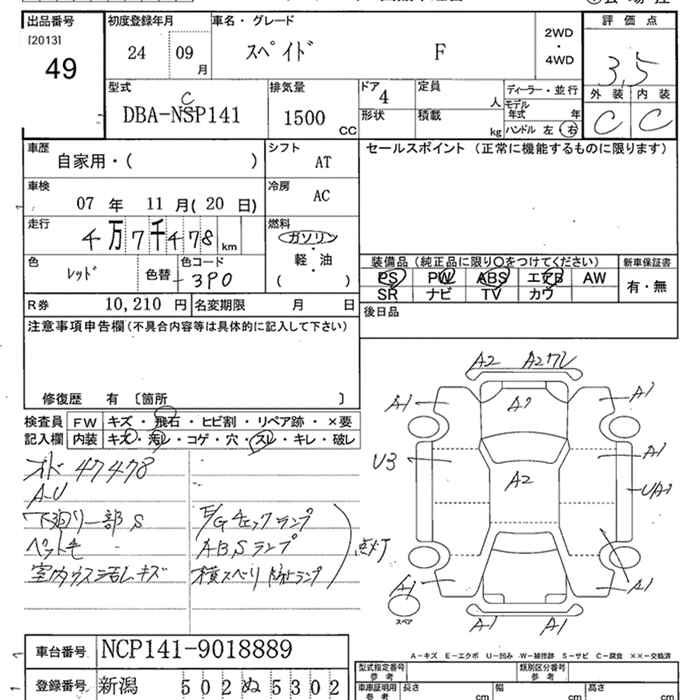 出品番号 初度登録年月 車名・グレード 2WD・4WD 評価点
[2013] 49 24 09月 スペイド F 3.5
型式 排気量 ドア 4 定員 人 ディーラー・並行 外装 内装
DBA-NSP141 C 1500 CC 形状 積載 kg モデル年式 年 ハンドル 左 右 C C
車歴 シフト セールスポイント (正常に機能するものに限ります)
自家用・( ) AT
車検 冷房
07 年 11 月 (20 日) AC
走行 燃料
4万7千478 km ガソリン
軽・油
( )
装備品 (純正品に限り○をつけてください) 新車保証書
色 色替 色コード PS PW ABS エアB AW 有・無
レッド 3P0 SR ナビ TV カワ
R券 10,210 円 名変期限 月 日 後日品
注意事項申告欄 (不具合内容等は具体的に記入して下さい)
修復歴 有 〔箇所 〕
検査員 FW キズ・飛石・ヒビ割・リペア跡・×要
記入欄 内装 キズ・汚レ・コゲ・穴・スレ・キレ・破レ
オド 47478
A-U
下廻り一部S E/Gチェックランプ
ペット毛 ABSランプ 点灯
室内ウス汚レキズ 横スベリ防止ランプ
A2 A2ワレ
A1 A1 A1
U3 A1
A2 UA1
A1 A1
スペア A1 A1
A-キズ E-エクボ U-凹み W-補修跡 S-サビ C-腐食 ××-交換済
車台番号 NCP141-9018889 型式指定番号 参考 類別区分番号 参考
登録番号 新潟 502 ぬ 5302 車庫証明用 参考 長さ cm 幅 cm 高さ cm